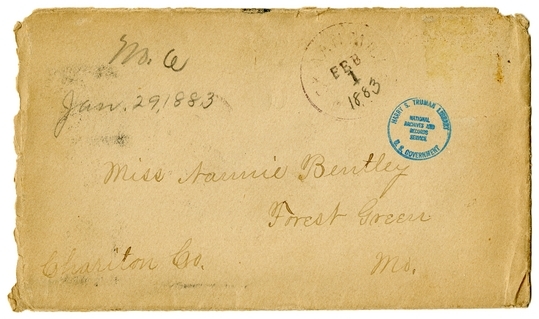 No. 6
Jan. 29, 1883
FEB
1
1883
HARRY S. TRUMAN LIBRARY
NATIONAL
ARCHIVES AND
RECORDS
SERVICE
U. S. GOVERNMENT
Miss Nannie Bentley
Forest Green
Chariton Co.
Mo.